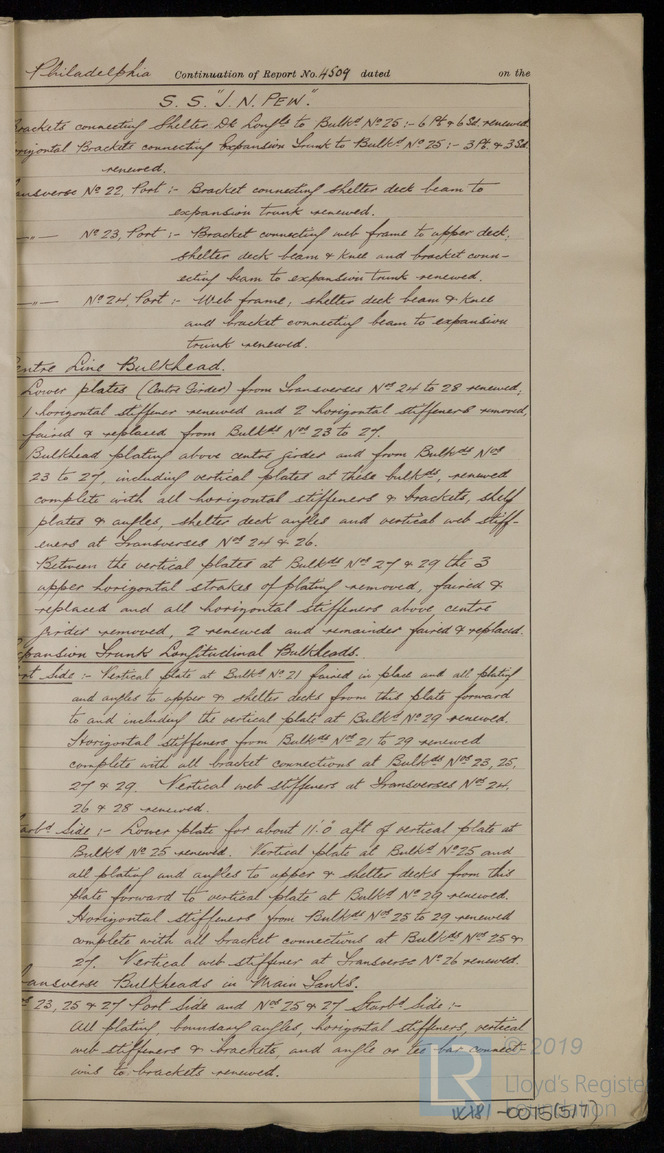 Philadelphia Continuation of Report No. 4509 dated on the
S. S. "J. N. PEW".
rackets connecting Shelter Dk Longls to Bulkd No 25 :- 6 Pt & 6 Sd. renewed.
rizontal Brackets connecting Expansion Trunk to Bulkd No 25 :- 3 Pt. & 3 Sd.
renewed.
ansverse No 22, Port :- Bracket connecting shelter deck beam to
expansion trunk renewed.
—"— No 23, Port :- Bracket connecting web frame to upper deck;
shelter deck beam & knee and bracket conn-
ecting beam to expansion trunk renewed.
—"— No 24, Port :- Web frame; shelter deck beam & knee
and bracket connecting beam to expansion
trunk renewed.
entre Line Bulkhead.
Lower plates (Centre Girder) from Transverses Nos 24 to 28 renewed;
1 horizontal stiffener renewed and 2 horizontal stiffeners removed,
faired & replaced from Bulkds Nos 23 to 27.
Bulkhead plating above centre girder and from Bulkds Nos
23 to 27, including vertical plates at these bulkds, renewed
complete with all horizontal stiffeners & brackets, shelf
plates & angles, shelter deck angles and vertical web stiff-
eners at Transverses Nos 24 & 26.
Between the vertical plates at Bulkds Nos 27 & 29 the 3
upper horizontal strakes of plating removed, faired &
replaced and all horizontal stiffeners above centre
girder removed, 2 renewed and remainder faired & replaced.
pansion Trunk Longitudinal Bulkheads.
rt Side :- Vertical plate at Bulkd No 21 faired in place and all plating
and angles to upper & shelter decks from this plate forward
to and including the vertical plate at Bulkd No 29 renewed.
Horizontal stiffeners from Bulkds Nos 21 to 29 renewed
complete with all bracket connections at Bulkds Nos 23, 25,
27 & 29. Vertical web stiffeners at Transverses Nos 24,
26 & 28 renewed.
arbd Side :- Lower plate for about 11'.0 aft of vertical plate at
Bulkd No 25 renewed. Vertical plate at Bulkd No 25 and
all plating and angles to upper & shelter decks from this
plate forward to vertical plate at Bulkd No 29 renewed.
Horizontal stiffeners from Bulkds Nos 25 to 29 renewed
complete with all bracket connections at Bulkds Nos 25 &
27. Vertical web stiffener at Transverse No 26 renewed.
ansverse Bulkheads in Main Tanks.
s 23, 25 & 27 Port Side and Nos 25 & 27 Starbd Side :-
All plating, boundary angles, horizontal stiffeners, vertical
web stiffeners & brackets, and angle or tee bar connect-
ions to brackets renewed.
© 2019
LR Lloyd's Register
Foundation
W181-0075(5/7)